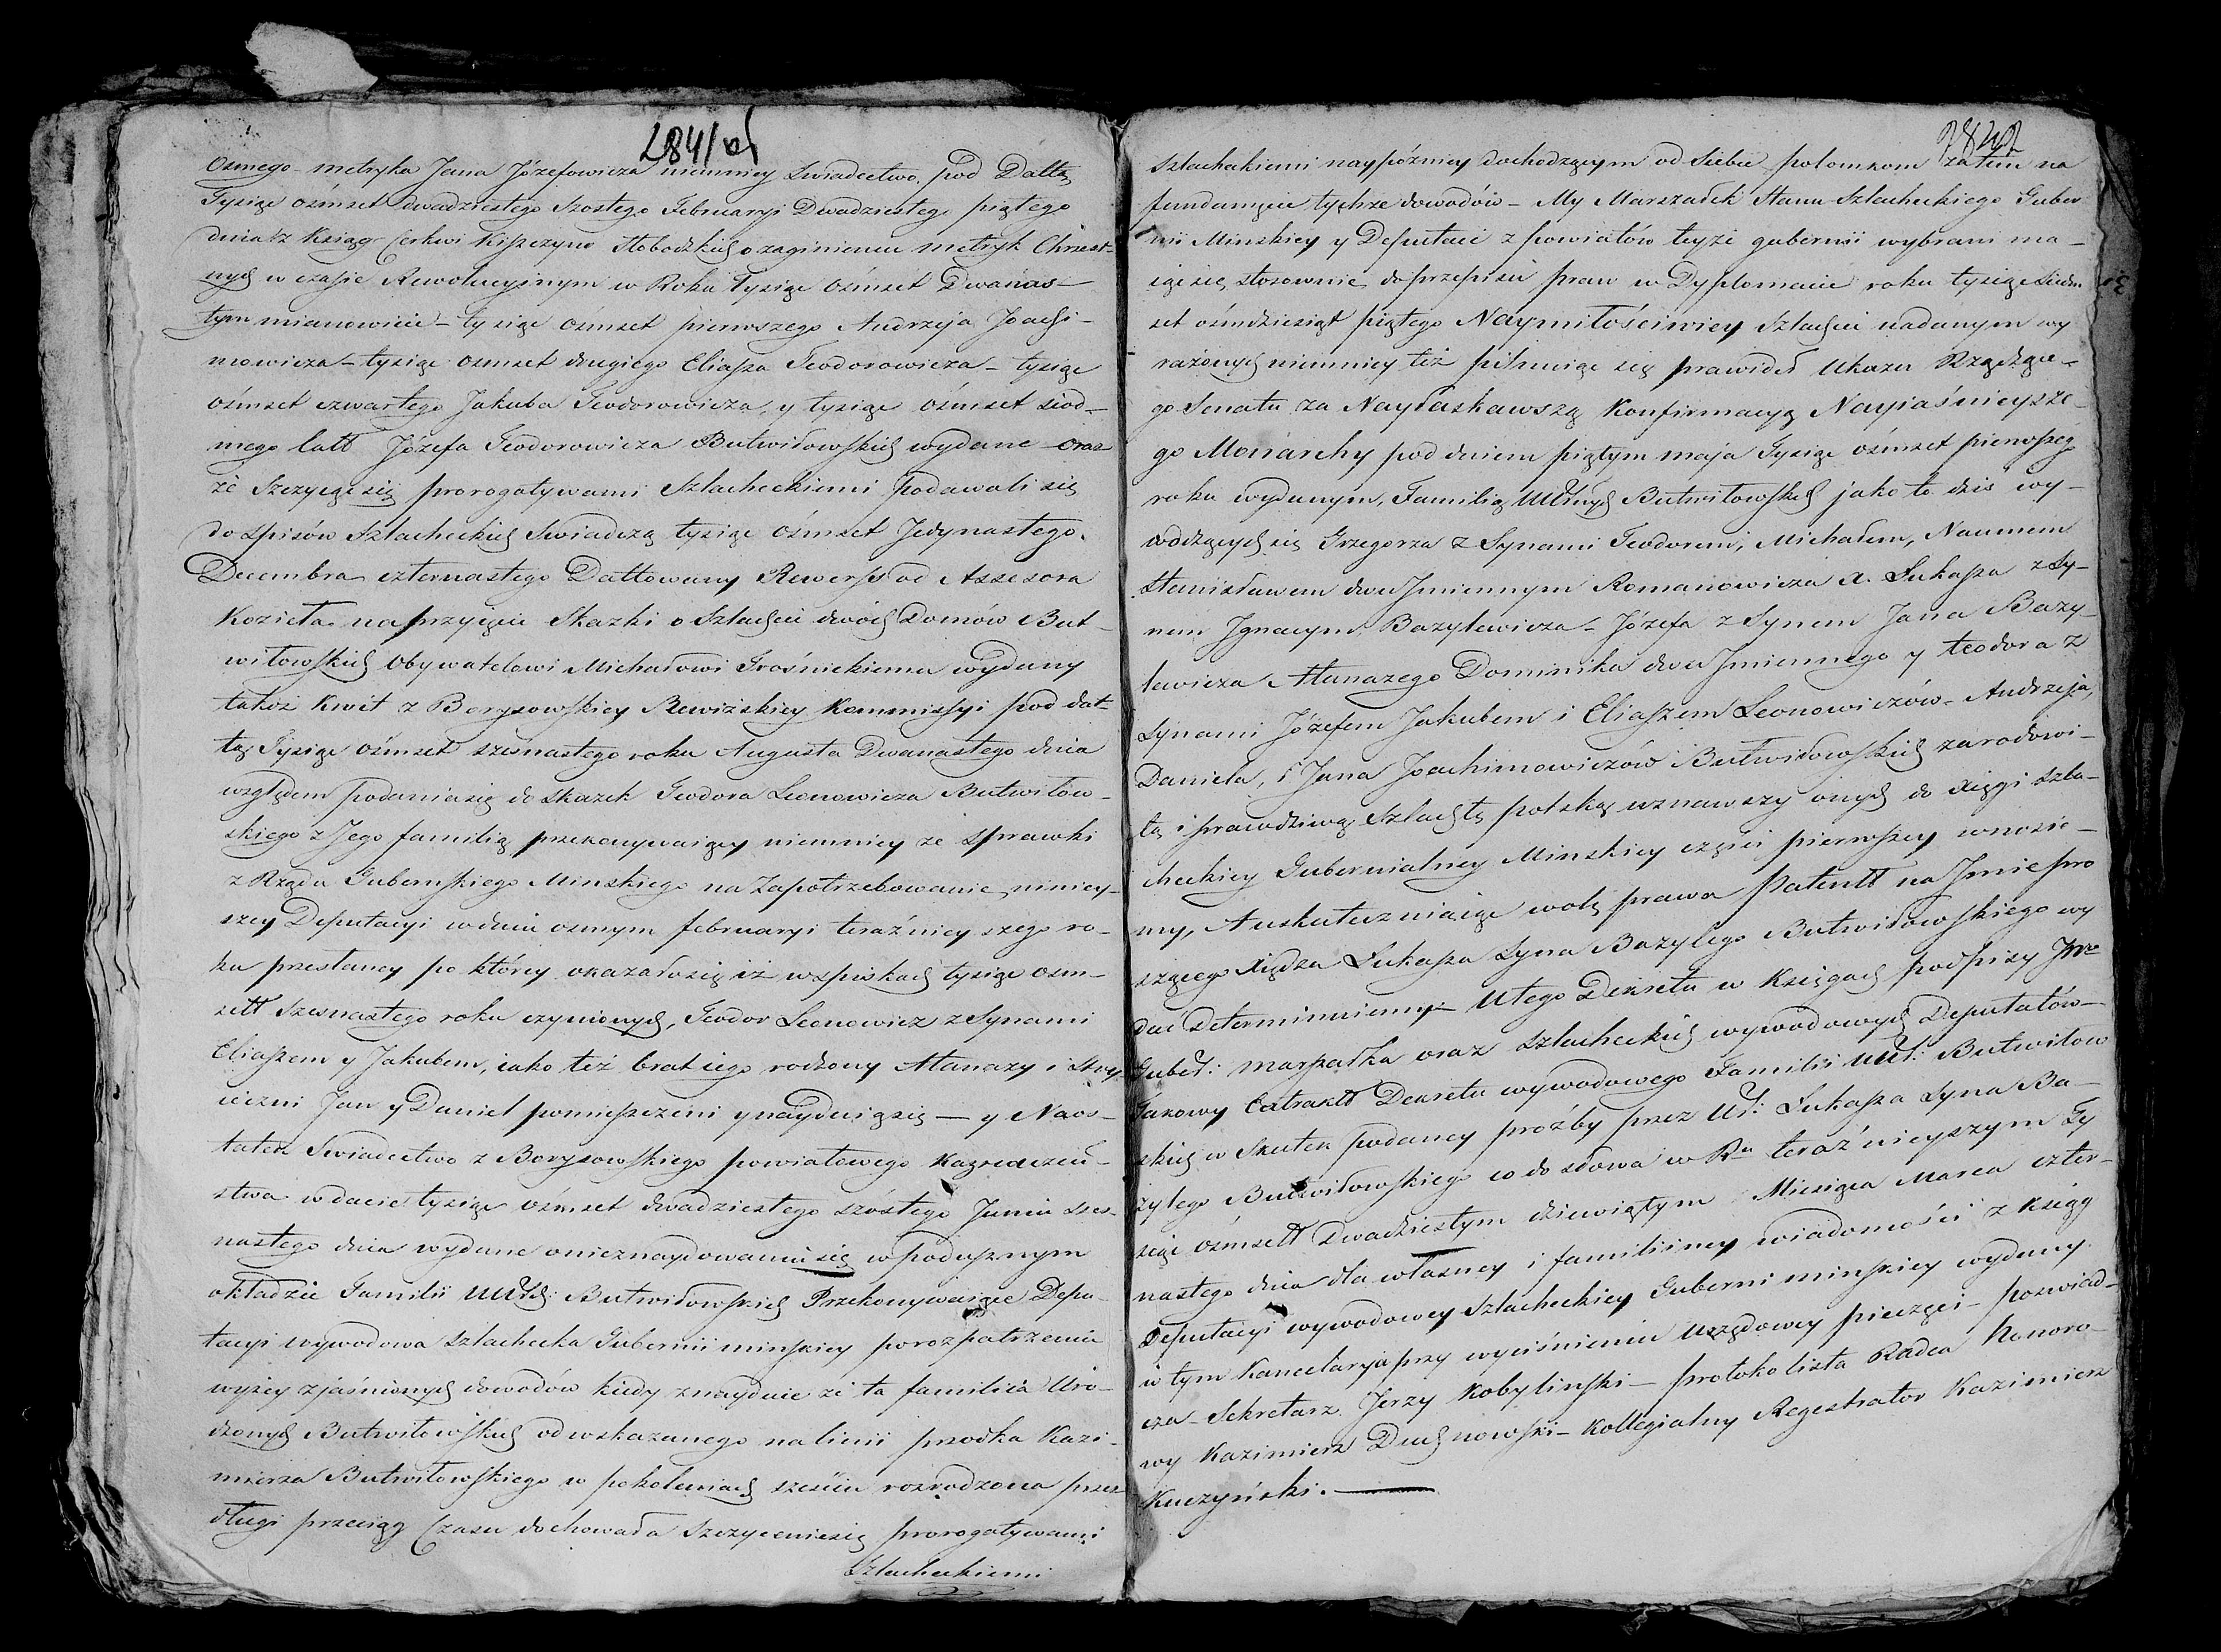 284/об
Osmego – metryka Jana Józefowicza niemniey Swiadectwo pod Dattą
Tysiąc ośmset dwudziestego Szostego Februaryi Dwudziestego piątego
dnia z Ksiąg Cerkwi Kiszczyno Słobodzkich o zaginieniu metryk Chrzest-
nych w czasie Rewolucyinym w Roku tysiąc ośmset Dwanas-
tym mianowicie – tysiąc osmset pierwszego Andrzeja Joachi-
mowicza – tysiąc osmset drugiego Eliasza Teodorowicza – tysiąc
ośmset czwartego Jakuba Teodorowicza, y tysiąc ośmset siod-
mego latt Józefa Teodorowicza Butwiłowskich wydane oraz
że Szczycąc się prorogatywami Szlacheckiemi podawali się
do spisów Szlacheckich Swiadczą tysiąc ośmset Jedynastego
Decembra czternastego Dattowany Rewerss od Assesora
Kozieła na przyjęcie Skazki o Szlachcie dwóch Domów But-
wiłowskich Obywatelowi Michałowi Grośnickiemu wydany
takoż Kwit z Borysowskiey Rewizskiey Kommissyi pod dat-
tą Tysiąc ośmset szesnastego roku Augusta Dwanastego dnia
względem podania się do skazek Teodora Leonowicza Butwiłow-
skiego z Jego familią przekonywaiący niemniey ze sprawki
z Rządu Gubernskiego Minskiego na Zapotrzebowanie niniey-
szey Deputacyi w dniu osmym februaryi teraźnieyszego ro-
ku przesłaney po którey okazało się iż w spiskach tysiąc osm-
sett Szesnastego roku czynionych, Teodor Leonowicz z Synami
Eliaszem y Jakubem, iako też brat iego rodzony Atanazy i stry
ieczni Jan y Daniel pomieszczeni ynayduią się — y Naos-
tatek Swiadectwo z Borysowskiego powiatowego Kaznaczeń-
stwa w dacie tysiąc ośmset dwudziestego szóstego Junia szes-
nastego dnia wydane o nieznaydowaniu się w podusznym
okładzie Familii UUrch: Butwiłowskich Przekonywaiące Depu-
tacyi wywodowa szlachecka Gubernii minskiey po rozpatrzeniu
wyżey zjaśnionych dowodów kiedy znayduie że ta familia Uro-
dzonych Butwiłowskich od wskazanego na linii przodka Kazi-
mierza Butwiłowskiego w pokoleniach sześciu rozrodzona przez
długi przeciąg Czasu dochowała Szczycenie się prorogatywami
Szlacheckiemi
284
Szlacheckiemi naypóźniey dochodzącym od siebie potomkom zatem na
fundamęcie tychże dowodów – My Marszałek Stanu Szlacheckiego Guber
nii Minskiey y Deputaci z powiatów teyże gubernii wybrani ma-
iąc się stosownie do przepisu praw w Dyplomacie roku tysiąc siedm
set ośmdziesiąt piątego Naymiłościwiey Szlachcie nadanym wy
rażonych niemniey też pilnuiąc się prawideł Ukazu Rządzące-
go Senatu za Nayłaskawszą Konfirmacyą Nayiaśnieysze-
go Monarchy pod dniem piątym maja Tysiąc ośmset pierwszeg
roku wydanym, Familią UUrnych Butwiłowskich jako to dziś wy-
wodzących się Grzegorza z Synami Teodorem, Michałem, Naumem
Stanisławem dwu Jmiennym Romanowicza X. Łukasza z Sy-
nem Jgnacym Bazylewicza – Józefa z Synem Jana Bazy-
lewicza Atanazego Dominika dwu Jmiennego y teodora z
Synami Józefem Jakubem i Eliaszem Leonowiczów – Andrzeja,
Daniela, i Jana Joachimowiczów Butwiłowskich za rodowi-
tą i prawdziwą Szlachtę polską uznawszy onych do xięgi szla-
checkiey Gubernialney Minskiey części pierwszey wnosie-
my, A uskuteczniaiąc wolę prawa Patentt na Jmie pro
szącego Xiędza Łukasza Syna Bazylego Butwiłowskiego wy
dać Determinuiemy – U tego Dekretu w Księgach podpisy JW
Guber: marszałka oraz szlacheckich wywodowych Deputatów –
Takowy Extraktt Dekretu wywodowego Familii UUr: Butwiłow
skich w Skutek podaney proźby przez Ur: Łukasza Syna Ba-
zylego Butwiłowskiego co do słowa w Rku teraźnieyszym Ty
siąc ośmsett Dwudziestym dziewiątym Miesiąca Marca czter-
nastego dnia dla własney i familiiney wiadomości z Ksiąg
Deputacyi wywodowey Szlacheckiey Guberni minskiey wydany
w tym Kancellaryja przy wyciśnieniu urzędowey pieczęci – poświad-
cza – Sekretarz Jerzy Kobylinski – protokolista Radca Honoro-
wy Kazimierz Duchnowski – Kollegialny Regestrator Kazimierz
Kuczyński. —